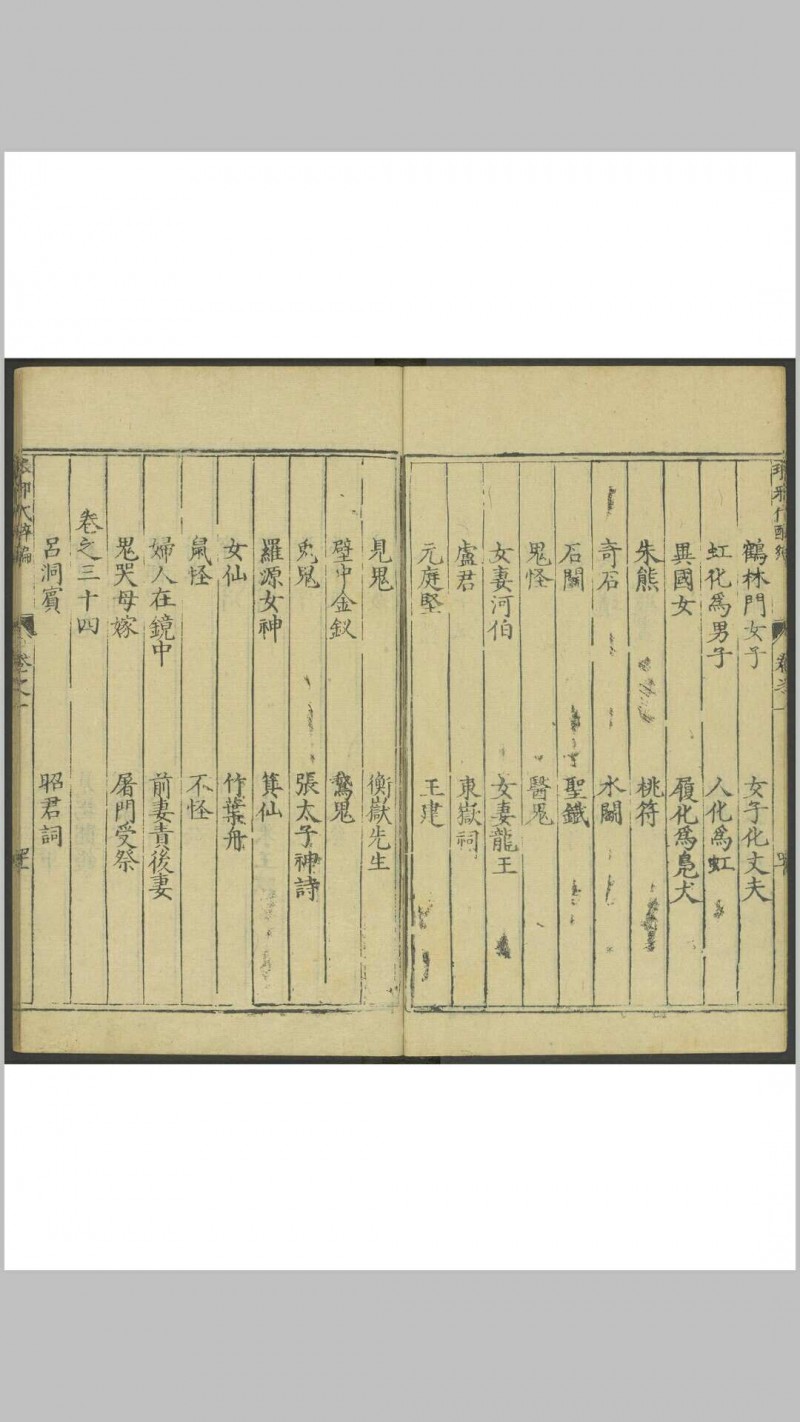 鶴林門女子 女子化丈夫
虹化為男子 人化為虹
異國女 履化為鳧犬
朱熊 桃符
奇石 水鬭
石鬭 聖鐵
鬼怪 醫鬼
女妻河伯 女妻龍王
盧君 東嶽祠
元庭堅 王建
見鬼 衡嶽先生
壁中金釵 驚鬼
兎鬼 張太子神詩
羅源女神 箕仙
女仙 竹葉舟
鼠怪 不怪
婦人在鏡中 前妻責後妻
鬼哭母嫁 屠門受祭
卷之三十四
呂洞賓 昭君詞